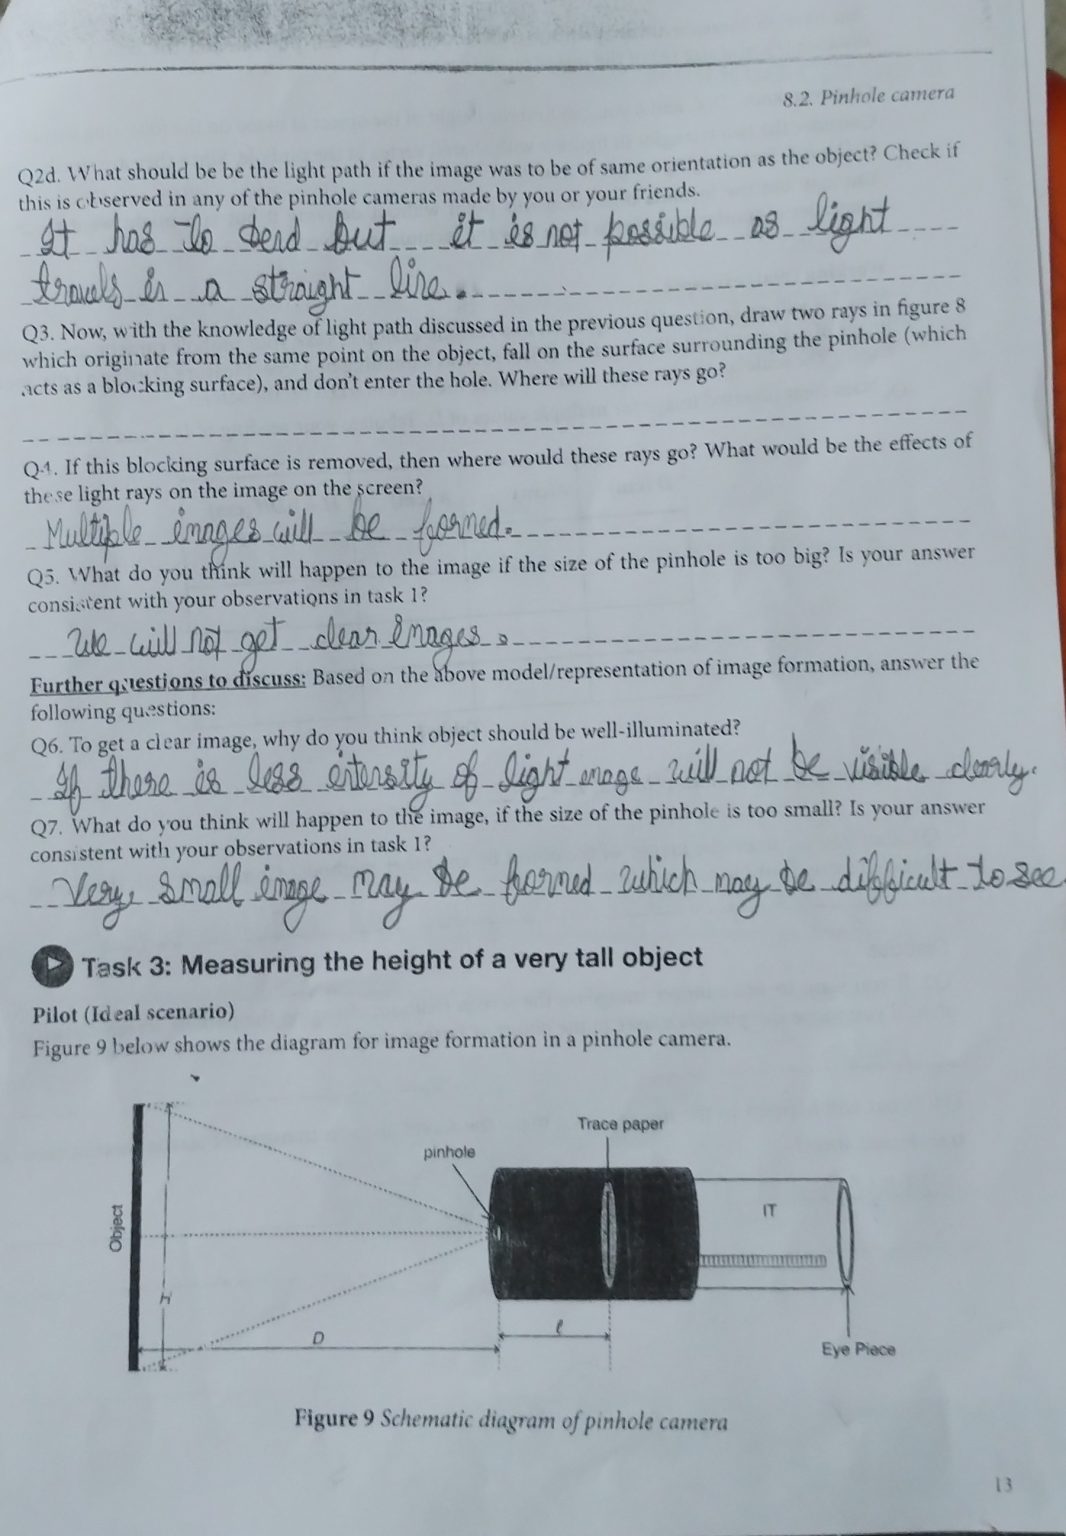 8.2. Pinhole camera
Q2d. What should be be the light path if the image was to be of same orientation as the object? Check if
this is observed in any of the pinhole cameras made by you or your friends.
It has to bend but it is not possible as light
travels in a straight line.
Q3. Now, with the knowledge of light path discussed in the previous question, draw two rays in figure 8
which originate from the same point on the object, fall on the surface surrounding the pinhole (which
acts as a blocking surface), and don't enter the hole. Where will these rays go?
Q4. If this blocking surface is removed, then where would these rays go? What would be the effects of
these light rays on the image on the screen?
Multiple images will be formed.
Q5. What do you think will happen to the image if the size of the pinhole is too big? Is your answer
consistent with your observations in task 1?
We will not get clear images.
Further questions to discuss: Based on the above model/representation of image formation, answer the
following questions:
Q6. To get a clear image, why do you think object should be well-illuminated?
If there is less intensity of light image will not be visible clearly.
Q7. What do you think will happen to the image, if the size of the pinhole is too small? Is your answer
consistent with your observations in task 1?
Very small image may be formed which may be difficult to see
Task 3: Measuring the height of a very tall object
Pilot (Ideal scenario)
Figure 9 below shows the diagram for image formation in a pinhole camera.
Trace paper
pinhole
Object
IT
H
D
l
Eye Piece
Figure 9 Schematic diagram of pinhole camera
13